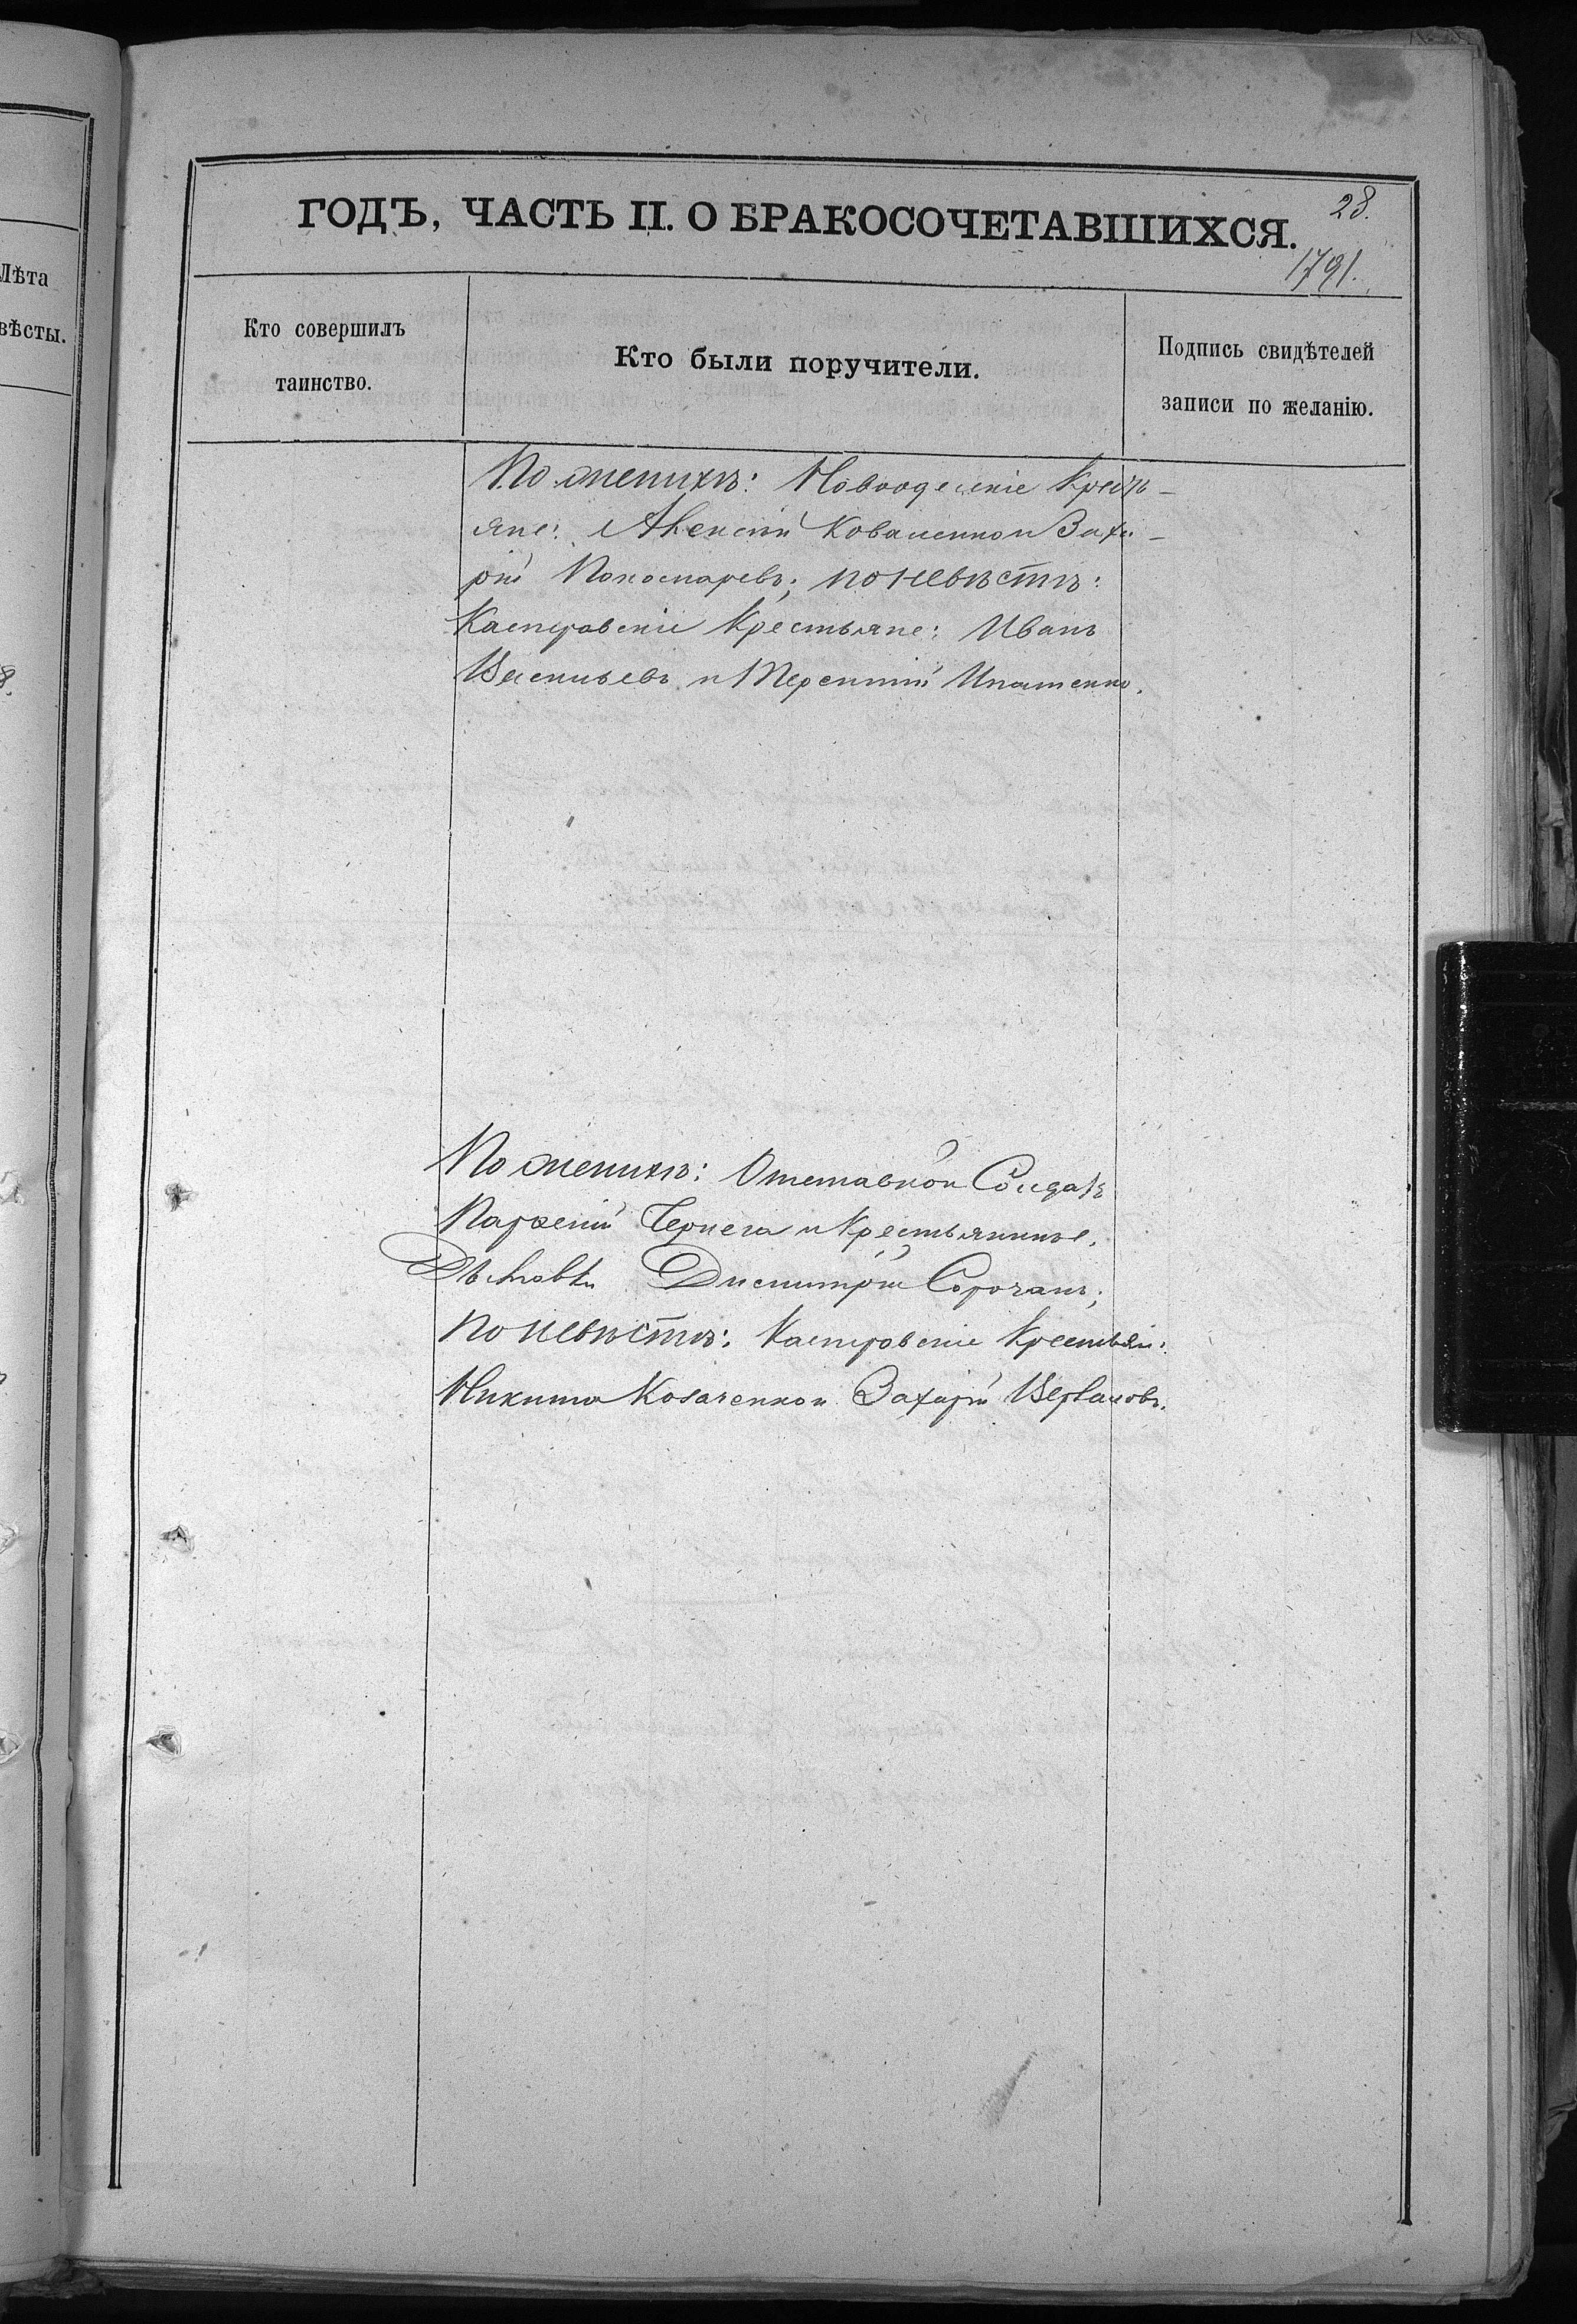 Лѣта
вѣсты.
8.
28.
ГОДЪ, ЧАСТЬ II. О БРАКОСОЧЕТАВШИХСЯ.
1791.
Кто совершилъ
таинство.
Кто были поручители.
Подпись свидѣтелей
записи по желанію.
По женихѣ: Новоодескіе Крестъ-
яне: Алексѣй Коваленко и Заха-
рій Пономаревъ; по невѣстѣ:
Касперовскіе Крестьяне: Иванъ
Васильевъ и Терентій Ипатенко.
По женихѣ: Отставной Солдатъ
Парфеній Чернега и Крестьянинъ
Димитрій Сорочанъ;
по невѣстѣ: Касперовскіе Крестьяне:
Никита Козаченко и Захарій Вербановъ.